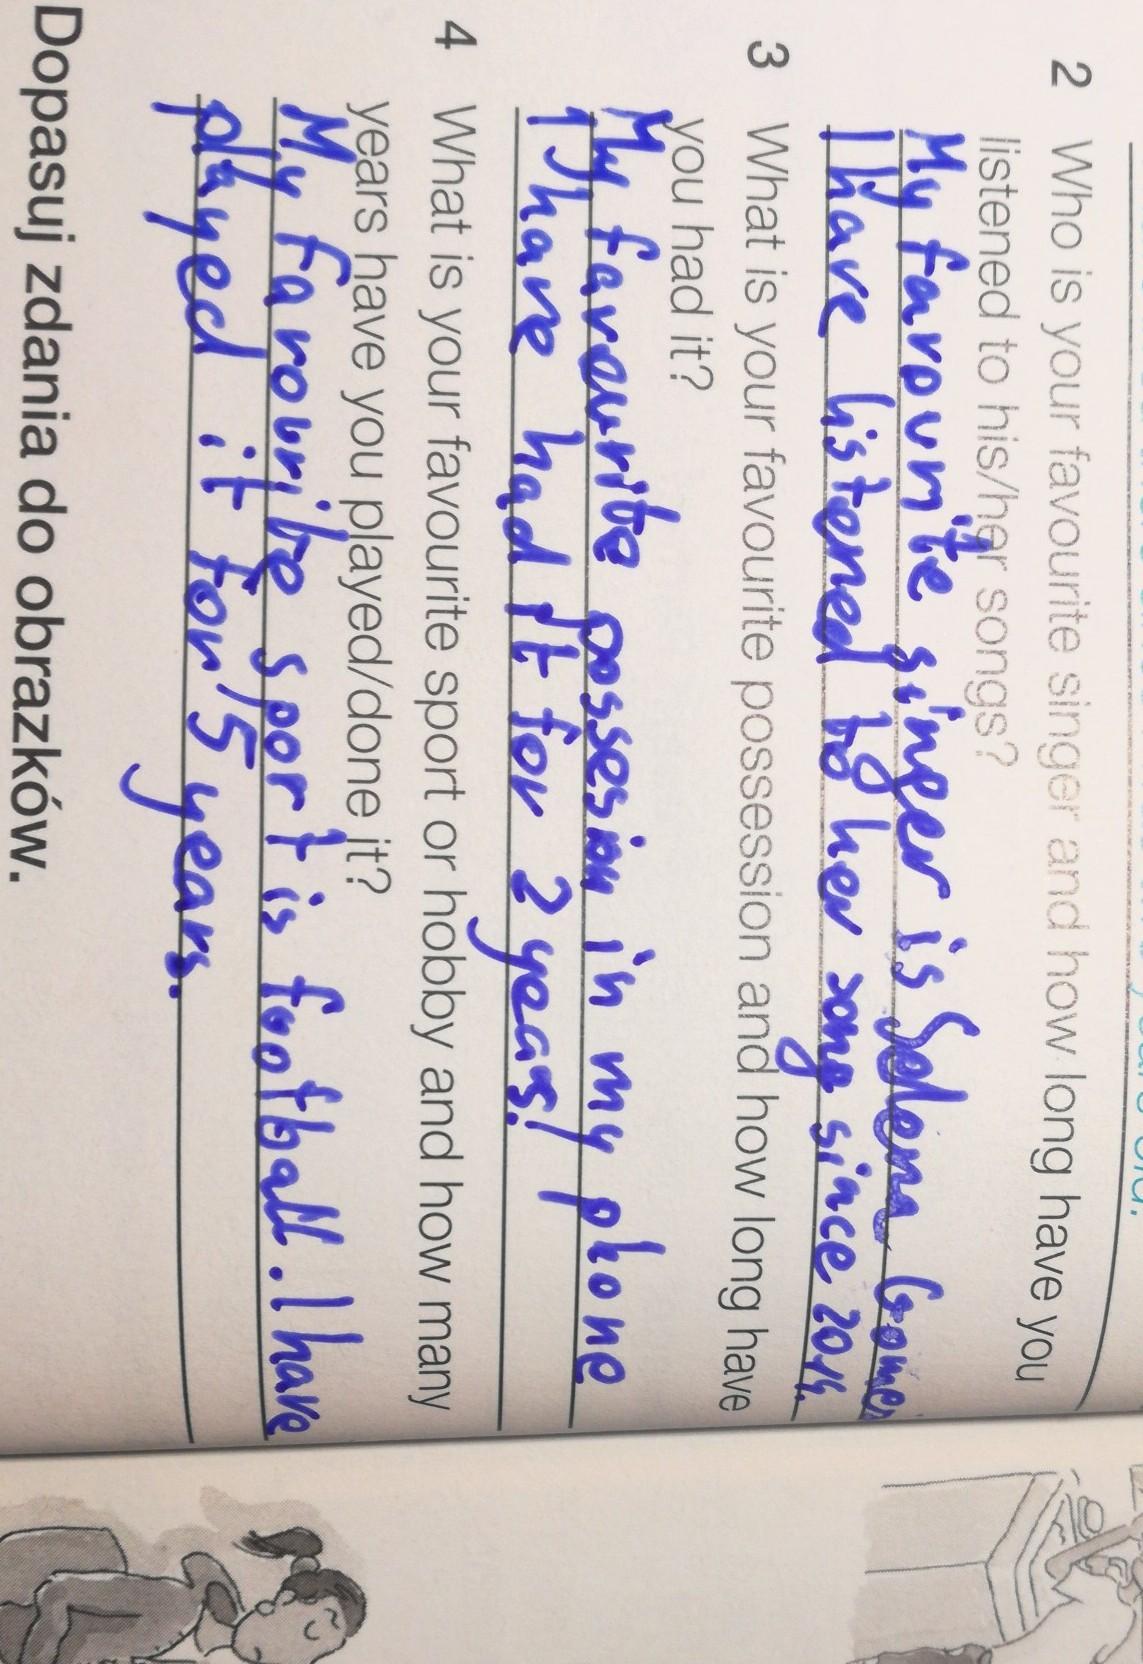 2 Who is your favourite singer and how long have you
listened to his/her songs?
My favourite singer is Selena Gomez
I have listened to her songs since 2014.
3 What is your favourite possession and how long have
you had it?
My favourite possesion in my phone
I have had it for 2 years!
4 What is your favourite sport or hobby and how many
years have you played/done it?
My favourite sport is football. I have
played it for 5 years.
Dopasuj zdania do obrazków.